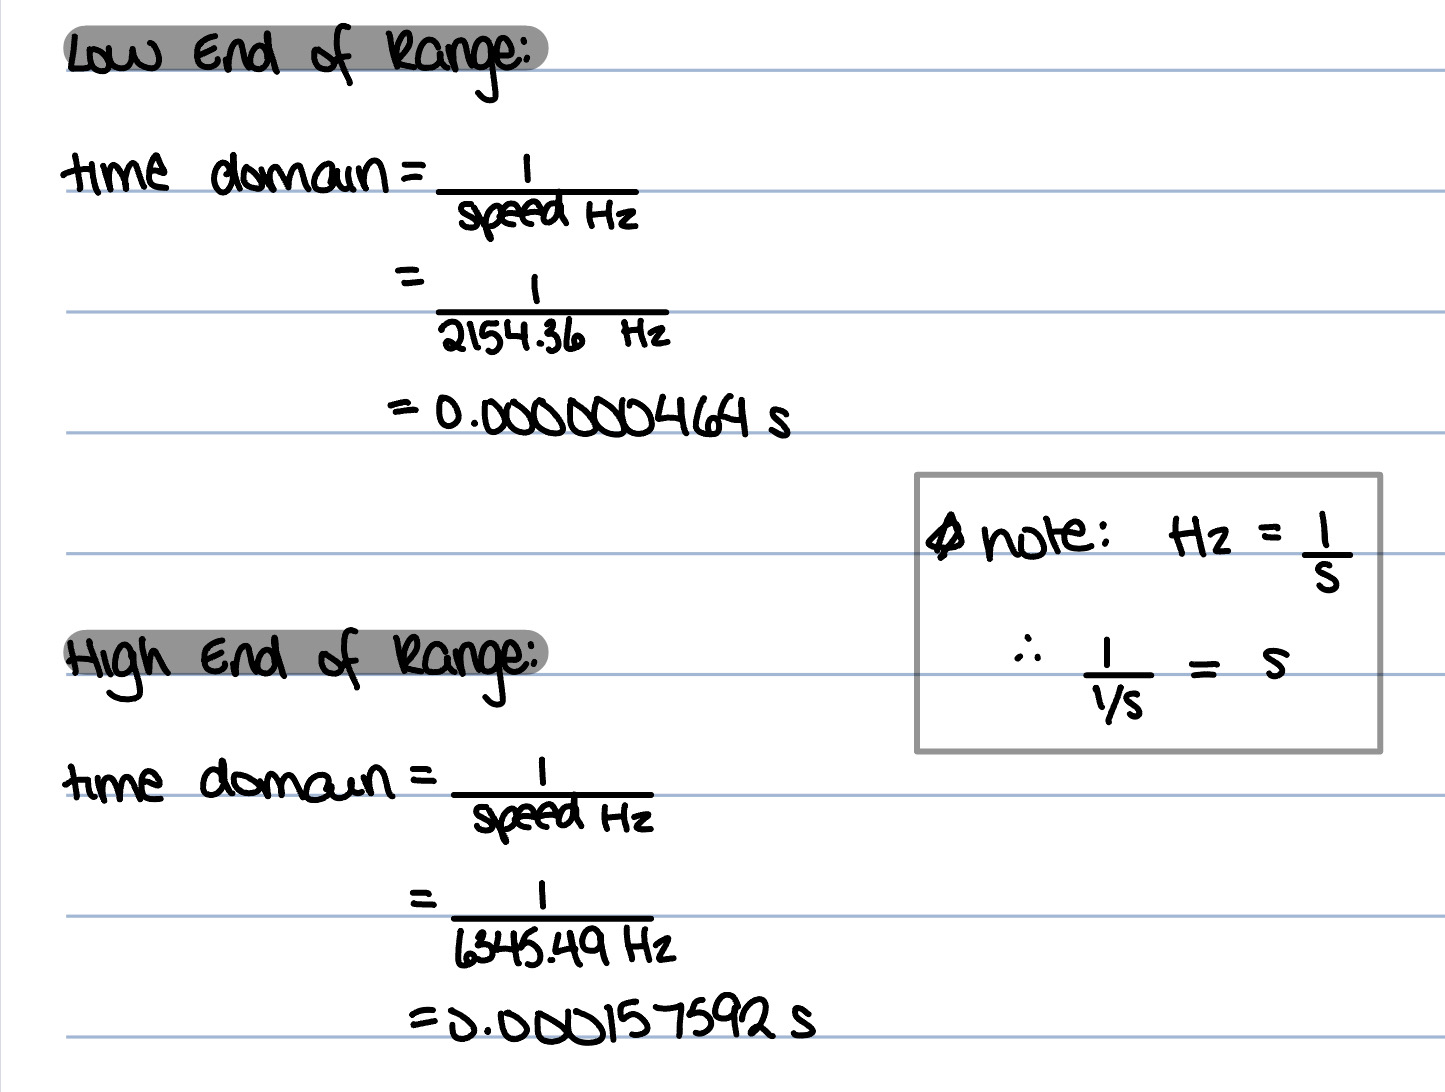 Low End of Range:
time domain = 1 / speed Hz
= 1 / 2154.36 Hz
= 0.0000000464 s
note: Hz = 1 / s
∴ 1 / 1/s = s
High End of Range:
time domain = 1 / speed Hz
= 1 / 6345.49 Hz
= 0.000157592 s